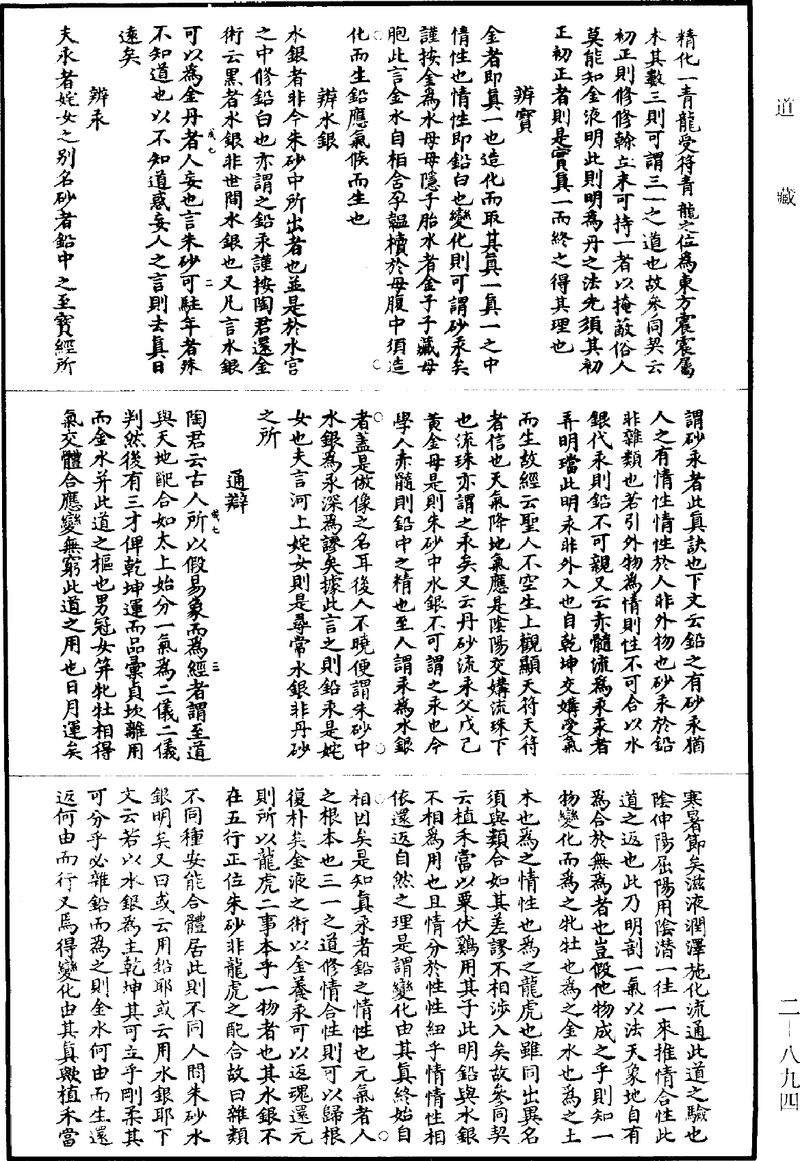 道藏
精化一青龍受符青龍之位為東方震震屬
木其數三則可謂三一之道也故參同契云
初正則修修翰立末可持一者以掩蔽俗人
莫能知金液明此則明為丹之法先須其初
正初正者則是寶真一而終之得其理也
辨寶
金者即真一也造化而取其真一真一之中
情性也情性即鉛白也變化則可謂砂汞矣
謹按金為水母母隱子胎水者金子子藏母
胞此言金水自相含孕韞櫝於母腹中須造
化而生鉛應氣候而生也
辨水銀
水銀者非今朱砂中所出者也並是於水宮
之中修鉛白也亦謂之鉛汞謹按陶君還金
術云黑者水銀非世間水銀也又凡言水銀
可以為金丹者人妄也言朱砂可駐年者殊
不知道也以不知道惑妄人之言則去真日
遠矣
辨汞
夫汞者姹女之別名砂者鉛中之至寶經所
謂砂汞者此真訣也下文云鉛之有砂汞猶
人之有情性情性於人非外物也砂汞於鉛
非雜類也若引外物為情則性不可合以水
銀代汞則鉛不可親又云赤髓流為汞汞者
弄明璫此明汞非外入也自乾坤交媾受氣
而生故經云聖人不空生上觀顯天符天符
者信也天氣降地氣應是陰陽交媾流珠下
也流珠亦謂之汞矣又云丹砂流汞父戊己
黃金母是則朱砂中水銀不可謂之汞也今
學人赤髓則鉛中之精也至人謂汞為水銀
者蓋是倣像之名耳後人不曉便謂朱砂中
水銀為汞深為謬矣據此言之則鉛汞是姹
女也夫言河上姹女則是尋常水銀非丹砂
之所
通辯
陶君云古人所以假易象而為經者謂至道
與天地配合如太上始分一氣為二儀二儀
判然後有三才俾乾坤運而品彙貞坎離用
而金水并此道之樞也男冠女笄牝牡相得
氣交體合應變無窮此道之用也日月運矣
寒暑節矣滋液潤澤施化流通此道之驗也
陰伸陽屈陽用陰潛一往一來推情合性此
道之返也此乃明剖一氣以法天象地自有
為合於無為者也豈假他物成之乎則知一
物變化而為之牝牡也為之金水也為之土
木也為之情性也為之龍虎也雖同出異名
須與類合如其差謬不相涉入矣故參同契
云植禾當以粟伏鷄用其子此明鉛與水銀
不相為用也且情分於性性紐乎情情性相
依還返自然之理是謂變化由其真終始自
相因矣是知真汞者鉛之情性也元氣者人
之根本也三一之道修情合性則可以歸根
復朴矣金液之術以金養汞可以返魂還元
則所以龍虎二事本乎一物者也其水銀不
在五行正位朱砂非龍虎之配合故曰雜類
不同種安能合體居此則不同人問朱砂水
銀明矣又曰或云用鉛耶或云用水銀耶下
文云若以水銀為主乾坤其可立乎剛柔其
可分乎必雜鉛而為之則金水何由而生還
返何由而行又焉得變化由其真歟植禾當
二-八九四